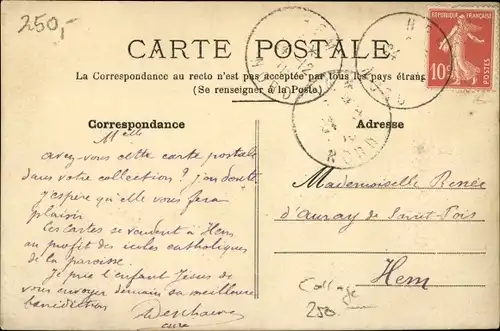 250,-
CARTE POSTALE
La Correspondance au recto n'est pas acceptée par tous les pays étrang
(Se renseigner à la Poste.)
RÉPUBLIQUE FRANÇAISE
10c
POSTES
NORD
NORD
Correspondance
Adresse
Melle
avez-vous cette carte postale
dans votre collection? j'en doute
J'espère qu'elle vous fera
plaisir.
Les cartes se vendent à Hem
au profit des écoles catholiques
de la paroisse.
Je prie l'enfant Jésus de
vous envoyer demain sa meilleure
bénédiction
curé
Mademoiselle Renée
d'Auray de Saint-Pois
Hem
Collage
250